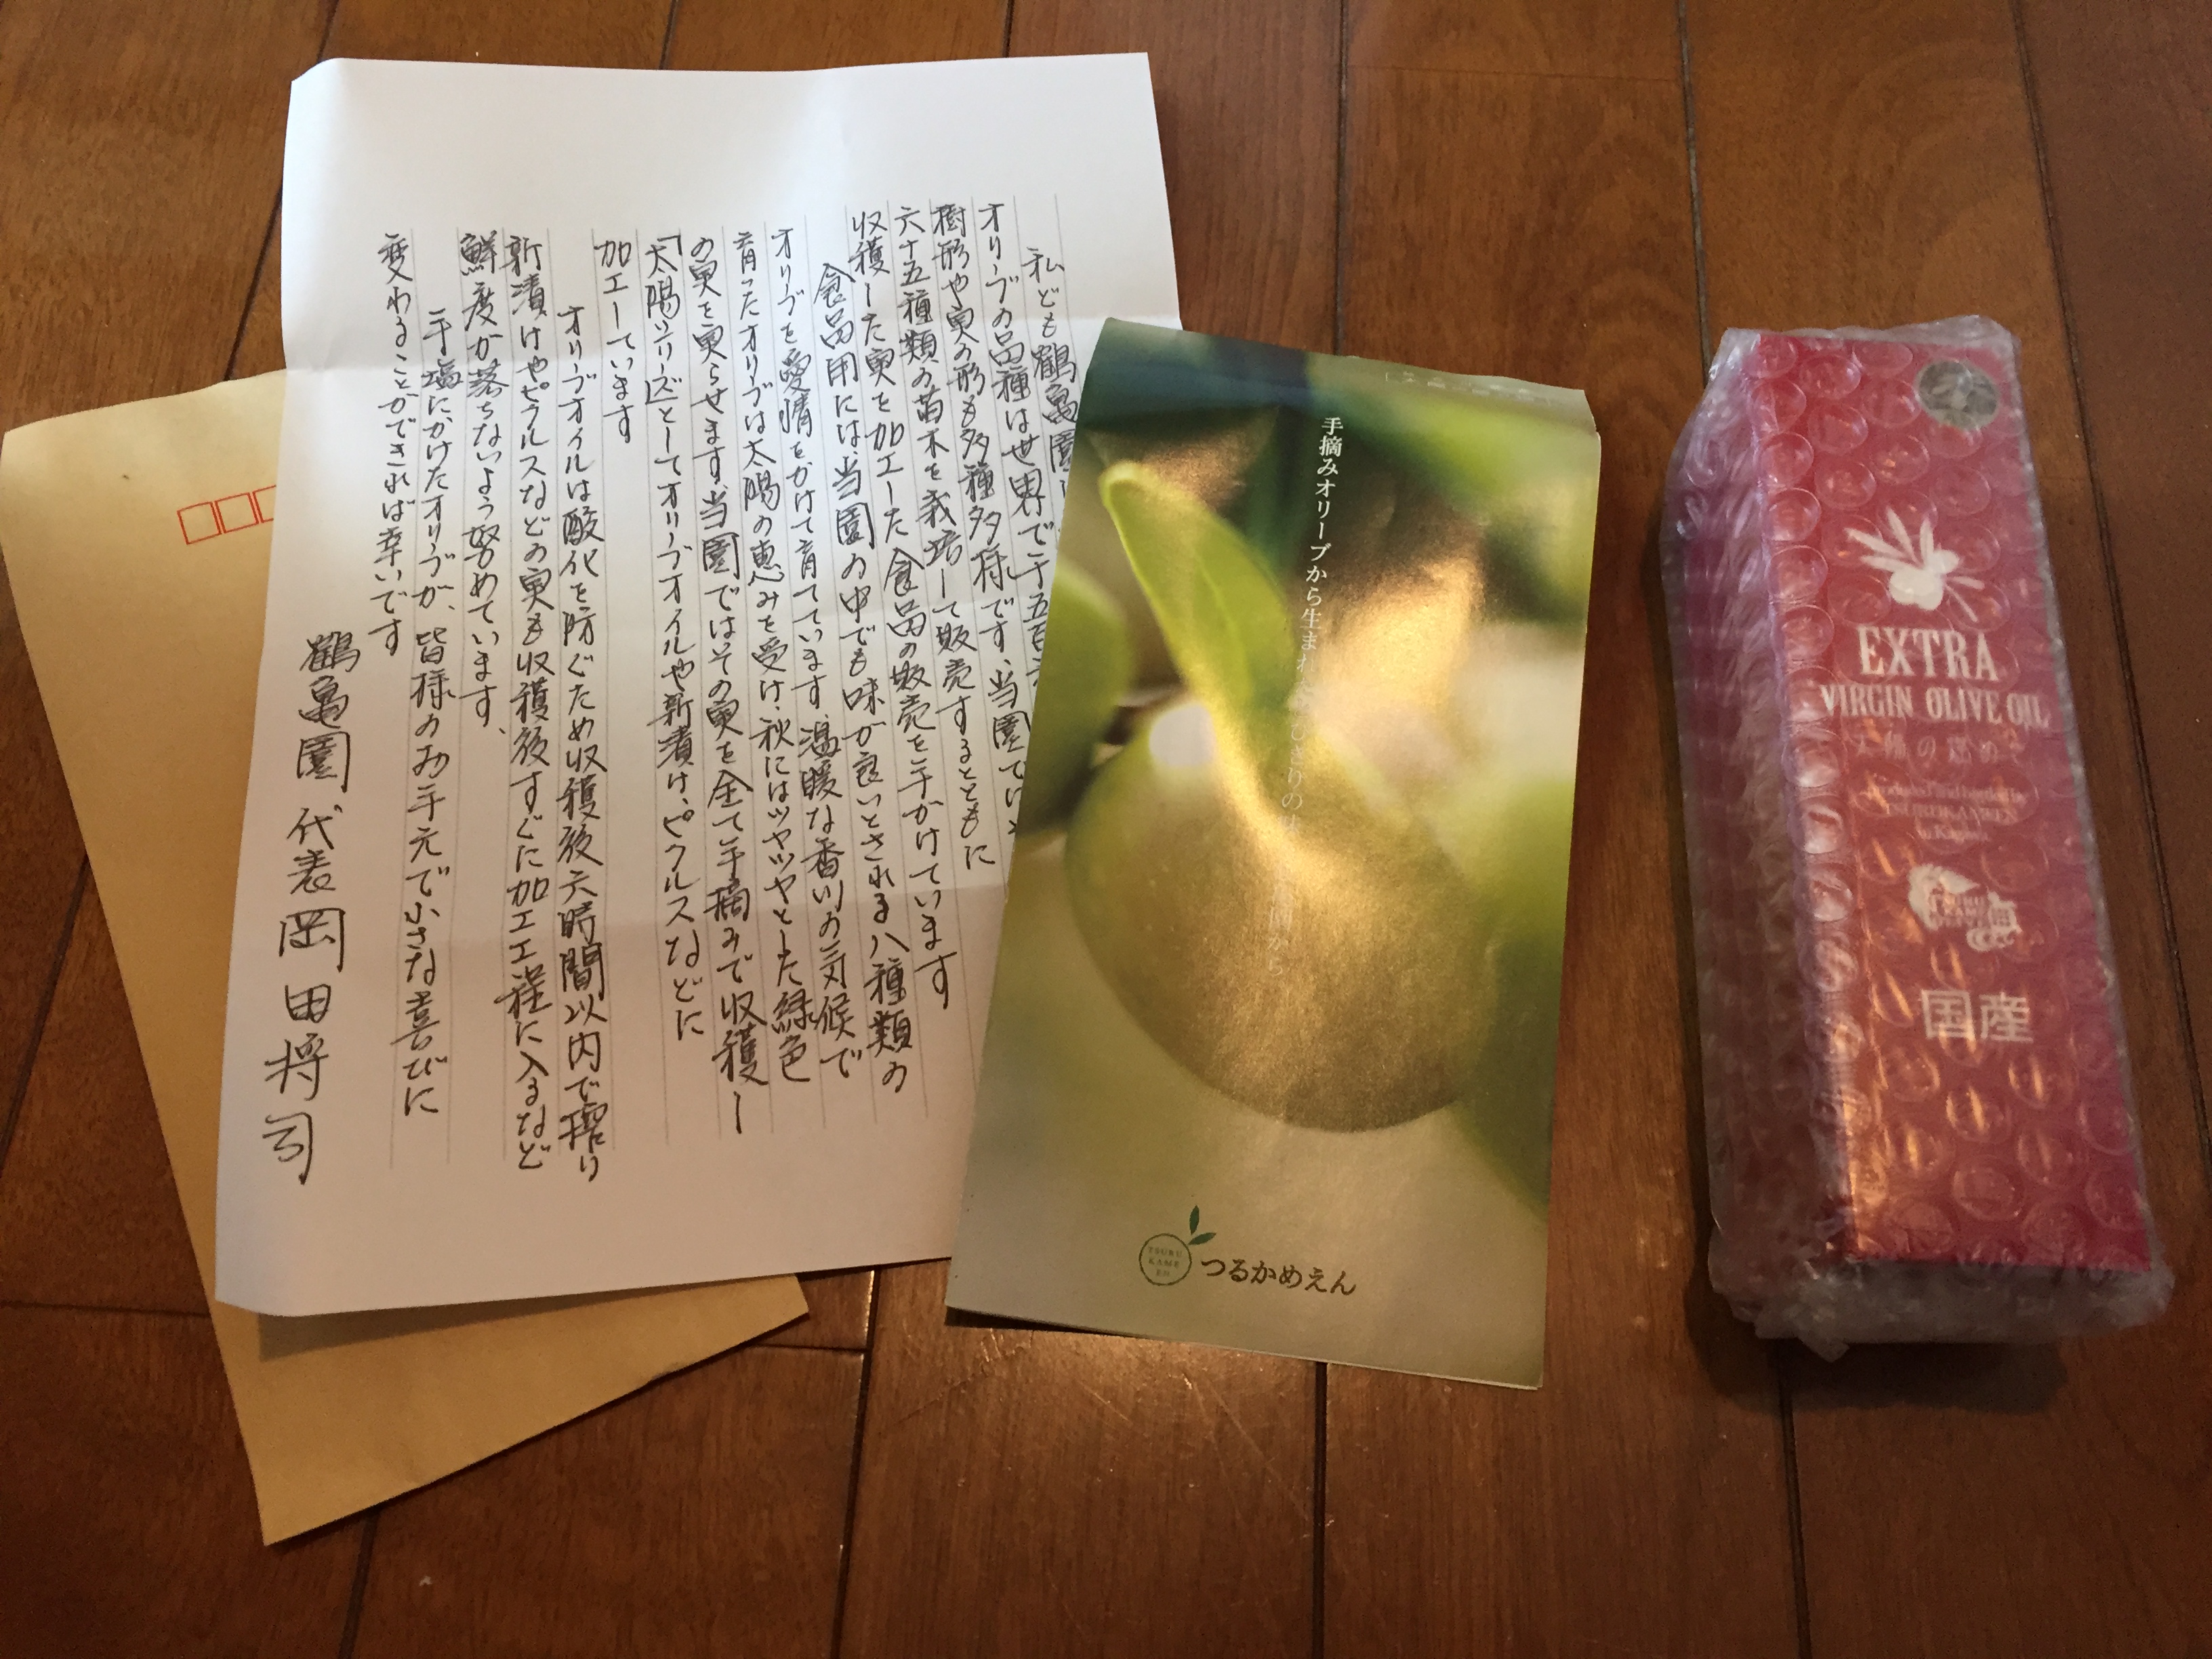 私ども鶴亀園
オリーブの品種は世界で千五百
樹形や実の形も多種多様です、当園では
六十五種類の苗木を栽培して販売するとともに
収穫した実を加工した食品の販売を手がけています
食品用には、当園の中でも味が良いとされる八種類の
オリーブを愛情をかけて育てています、温暖な香川の気候で
育ったオリーブは太陽の恵みを受け、秋にはツヤツヤとした緑色
の実を実らせます、当園ではその実を全て手摘みで収穫し
「太陽シリーズ」としてオリーブオイルや新漬け、ピクルスなどに
加工しています
オリーブオイルは酸化を防ぐため収穫後六時間以内で搾り
新漬けやピクルスなどの実も収穫後すぐに加工工程に入るなど
鮮度が落ちないよう努めています、
手塩にかけたオリーブが、皆様のお手元で小さな喜びに
変わることができれば幸いです
鶴亀園 代表 岡田将司
手摘みオリーブから生まれたとびきりの
TSURU
KAME
EN
つるかめえん
EXTRA
VIRGIN OLIVE OIL
太陽の恵み
Produced and bottled by
TSURUKAMEEN
in Kagawa
TSURU
KAME
国産